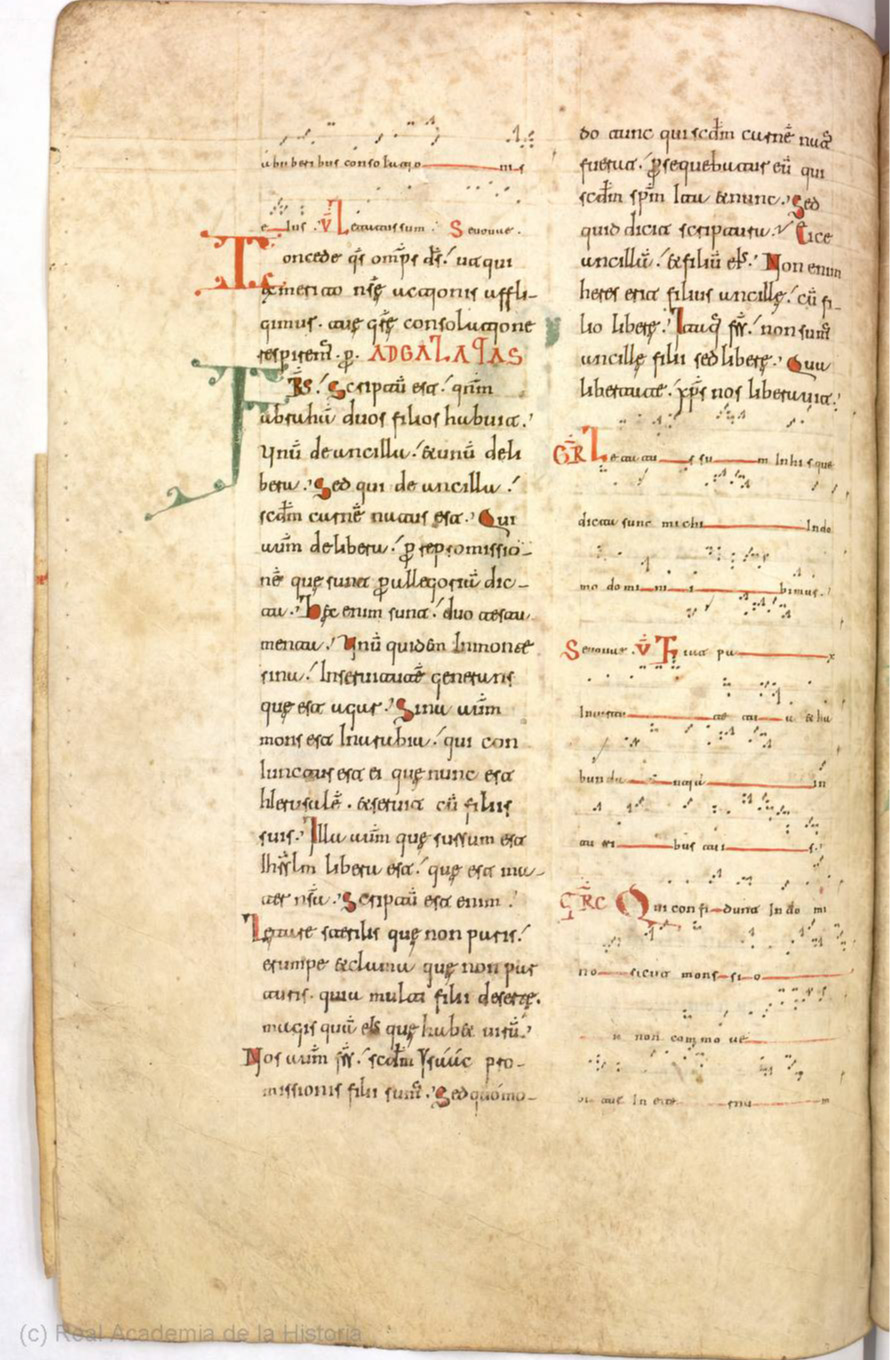 uberibus consolatio nis
e ius · V̄ Letatus sum · Seuouae ·
Concede qs̄ omp̄s ds̄ ut qui
ex merito nrē actionis affli-
gimus · tuę grē consolatione
respirem̄ · p̄ · AD GALATAS
FRS̄ Scriptū est qnm̄
abraham duos filios habuit
Vnū de ancilla & unū de li
bera Sed qui de ancilla
scdm̄ carnē natus est Qui
aūm de libera p repromissio-
nē quę sunt p allegoriā dic-
ta Hęc enim sunt duo testa
menta Vnū quidem In monte
sina In seruitutē generans
que est agar Sina aūm
mons est In arabia qui con
Iunctus est ei quę nunc est
hIerusalē · & seruit cū filiis
suis Illa aūm quę sursum est
Ihrslm libera est quę est ma-
ter nrā Scriptū est enim
Letare sterilis quę non paris
erumpe & clama quę non par
turis · quia multi filii desertę ·
magis quā eIs quę hab& uirū
Nos aūm frs̄ scdm̄ Ysaac pro-
missionis filii sum̄ Sed quomo-
do tunc qui scdm̄ carnē nat'
fuerat psequebatur eū qui
scdm̄ spm̄ Ita & nunc Sed
quid dicit scriptura Eice
ancillā & filiū eIs Non enim
heres erit filius ancillę cū fi-
lio liberę Itaq' frs̄ non sum̄
ancillę filii sed liberę Qua
libertate xp̄s nos liberauit
GR̄ Letatus su m In his que
dicta sunt michi In do
mo domi ni i bimus
Seuouae · V̄ Fiat pa x
In uirtu te tu a & ha
bunda ntia in
tu rri bus tui s
TRC̄ Qui confi dunt In do mi
no sicut mons si o
n non commo ue
bi tur In eter nu m
(c) Real Academia de la Historia